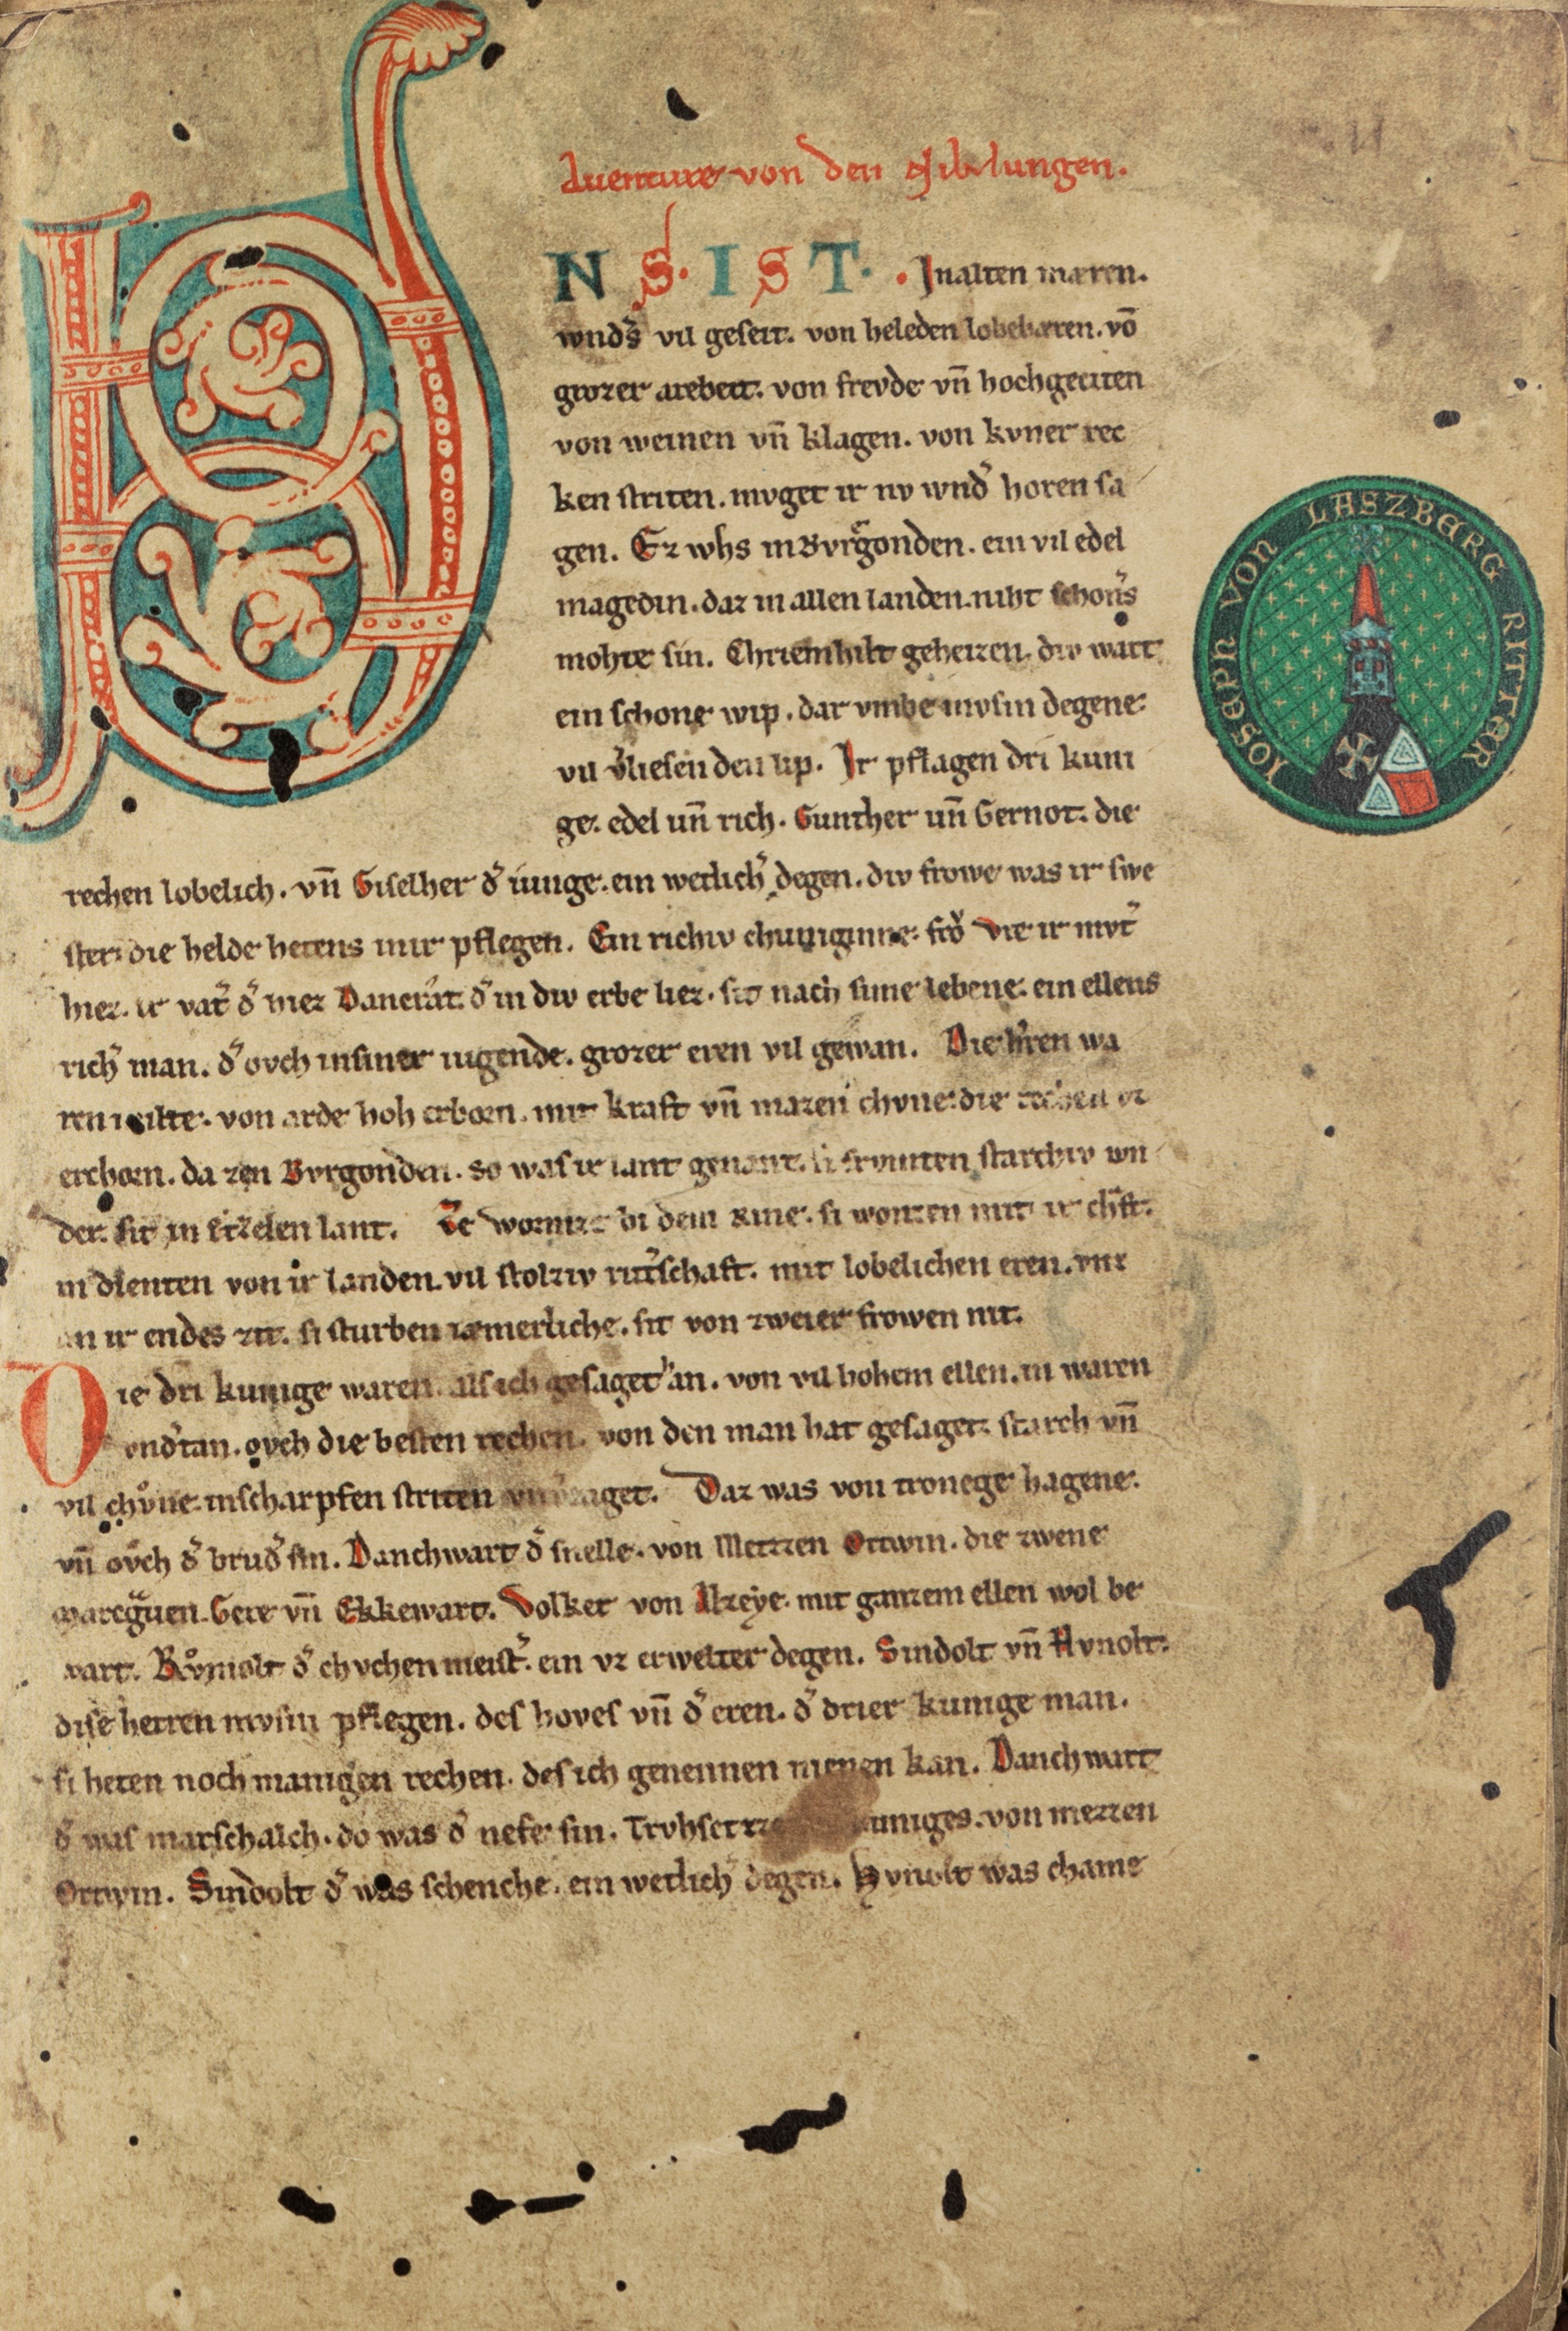 Auenture von den Nibelungen.
VNS. IST. Jn alten mæren.
wnds̉ vil geseit. von heleden lobebæren. võ
grozer arebeit. von frevde vn̄ hochgeciten
von weinen vn̄ klagen. von kvner rec
ken striten. mvget ir nv wnd̉ horen sa
gen. Ez whs in Bvrgonden. ein vil edel
magedin. daz in allen landen. niht schon̉s
mohte sin. Chriemhilt geheizen. div wart
ein schone wip. dar vmbe mvsin degene.
vil v̉liesen den lip. Ir pflagen dri kuni
ge. edel un̄ rich. Gunther un̄ Gernot. die
rechen lobelich. vn̄ Giselher d̉ iunge. ein wetlich̉ degen. div frowe was ir swe
ster. die helde hetens inir pflegen. Ein richiv chuniginne. frŏ Vte ir mvt̉
hiez. ir vat̉ d̉ hiez Dancrat. d̉ in div erbe liez. sit nach sime lebene. ein ellens
rich̉ man. d̉ ovch insiner iugende. grozer eren vil gewan. Die h̉ren wa
ren milte. von arde hoh erborn. mit kraft vn̄ mazen chvne. die rechen vz
erchorn. da zen Bvrgonden. so was ir lant genant. si frvmten starchiv wn
der. sit in Etzelen lant. Ze Wormze bi dem Rine. si wonten mit ir ch̉ft.
in dienten von ir landen. vil stolziv rit̉schaft. mit lobelichen eren. vnz
an ir endes zit. si sturben iæmerliche. sit von zweier frowen nit.
Die dri kunige waren. als ich gesaget han. von vil hohem ellen. in waren
vnd̉tan. ovch die besten rechen. von den man hat gesaget. starch vn̄
vil chvͦne. inscharpfen striten vnv̉zaget. Daz was von tronege hagene.
vn̄ ovͦch d̉ brud̉ sin. Danchwart d̉ snelle. von Metzzen Ortwin. die zwene
marcgͣuen. Gere vn̄ Ekkewart. Volker von Alzeye. mit ganzem ellen wol be
wart. Rvͦmolt d̉ chvchenmeist̉. ein vz erwelter degen. Sindolt vn̄ Hvnolt.
dise herren mvsin pflegen. des hoves vn̄ d̉ eren. d̉ drier kunige man.
si heten noch manigen rechen. des ich genennen nienen kan. Danchwart
d̉ was marschalch. do was d̉ nefe sin. Trvhsetzze kuniges. von mezzen
Ortwin. Sindolt d̉ was schenche. ein wetlich̉ degen. Hvnolt was chame
IOSEPH VON LASZBERG RITTER